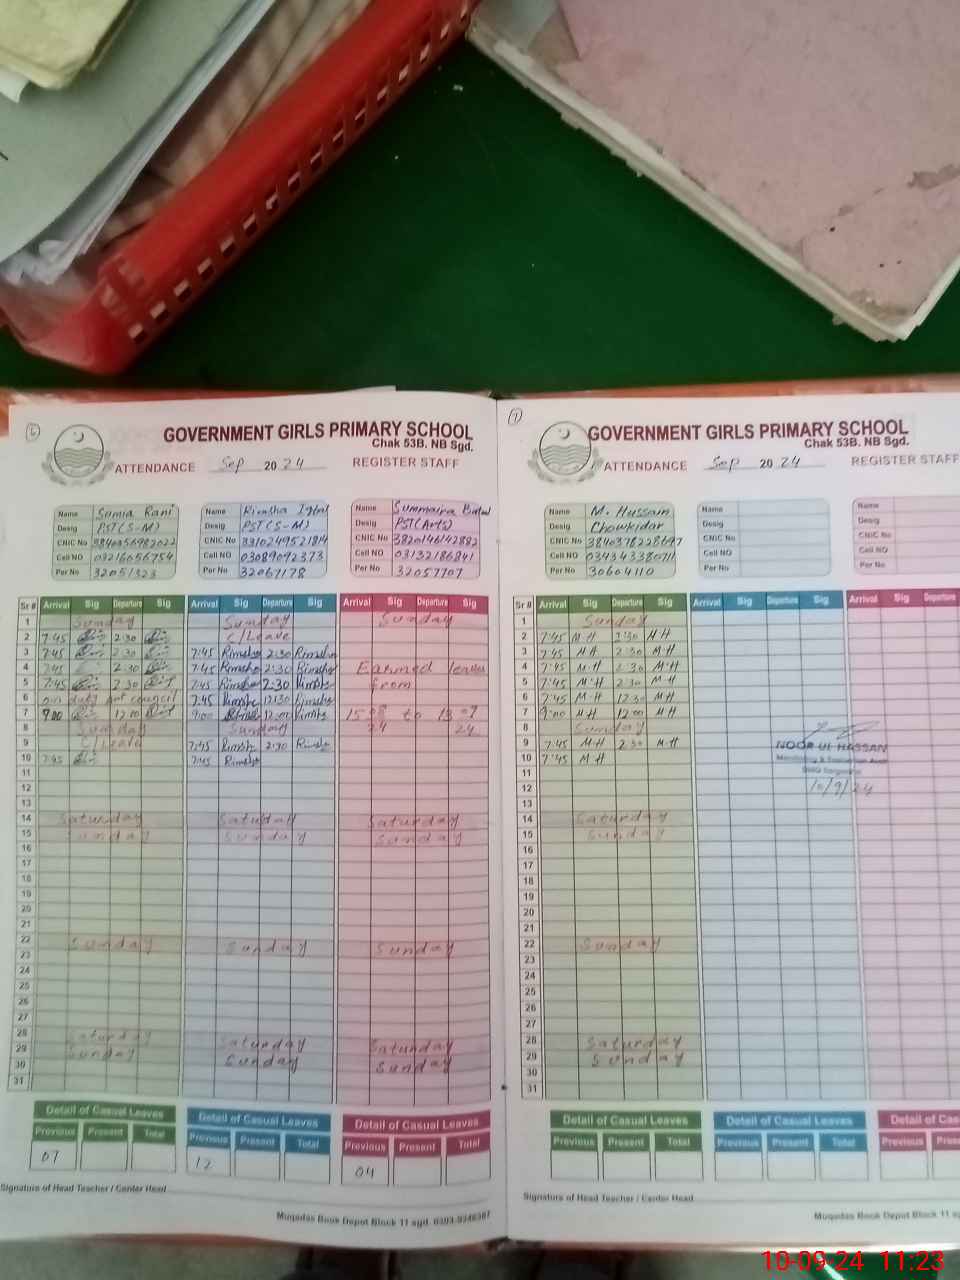 6
GOVERNMENT GIRLS PRIMARY SCHOOL
Chak 53B. NB Sgd.
ATTENDANCE Sep 2024 REGISTER STAFF
Name Sumia Rani
Desig PST(S-M)
CNIC No 3840356982022
Cell NO 03216056754
Per No 32051323
Name Rimsha Iqbal
Desig PST(S-M)
CNIC No 3310249521814
Cell NO 03089092373
Per No 32067178
Name Summaira Bilal
Desig PST(Arts)
CNIC No 3820146142882
Cell NO 03132186841
Per No 32057707
Sr # Arrival Sig Departure Sig Arrival Sig Departure Sig Arrival Sig Departure Sig
1 Sunday Sunday Sunday
2 7:45 2:30 C/Leave
3 7:45 2:30 7:45 Rimsha 2:30 Rimsha
4 7:45 2:30 7:45 Rimsha 2:30 Rimsha Earned leave
5 7:45 2:30 7:45 Rimsha 2:30 Rimsha from
6 on duty 7:45 Rimsha 12:30 Rimsha
7 9:00 12:00 9:00 Rimsha 12:00 Rimsha 15-08 to 13-09
8 Sunday Sunday 24 24
9 C/Leave 7:45 Rimsha 2:30 Rimsha
10 7:45 7:45 Rimsha
11
12
13
14 Saturday Saturday Saturday
15 Sunday Sunday Sunday
16
17
18
19
20
21
22 Sunday Sunday Sunday
23
24
25
26
27
28 Saturday Saturday Saturday
29 Sunday Sunday Sunday
30
31
Detail of Casual Leaves Detail of Casual Leaves Detail of Casual Leaves
Previous Present Total Previous Present Total Previous Present Total
07 12 04
Signature of Head Teacher / Center Head
Muqadas Book Depot Block 11 sgd.
7
GOVERNMENT GIRLS PRIMARY SCHOOL
Chak 53B. NB Sgd.
ATTENDANCE Sep 2024 REGISTER STAFF
Name M. Hussain
Desig Chowkidar
CNIC No 3840378228697
Cell NO 03434338071
Per No 30604110
Name
Desig
CNIC No
Cell NO
Per No
Name
Desig
CNIC No
Cell NO
Per No
Sr # Arrival Sig Departure Sig Arrival Sig Departure Sig Arrival Sig Departure
1 Sunday
2 7:45 M·H 2:30 M·H
3 7:45 M·H 2:30 M·H
4 7:45 M·H 2:30 M·H
5 7:45 M·H 2:30 M·H
6 7:45 M·H 12:30 M·H
7 9:00 M·H 12:00 M·H
8 Sunday
9 7:45 M·H 2:30 M·H
10 7:45 M·H
NOOR UL HASSAN
10/9/24
11
12
13
14 Saturday
15 Sunday
16
17
18
19
20
21
22 Sunday
23
24
25
26
27
28 Saturday
29 Sunday
30
31
Detail of Casual Leaves Detail of Casual Leaves Detail of Cas
Previous Present Total Previous Present Total Previous Prese
Signature of Head Teacher / Center Head
Muqadas Book Depot Block 11 sg
10-09-24 11:23